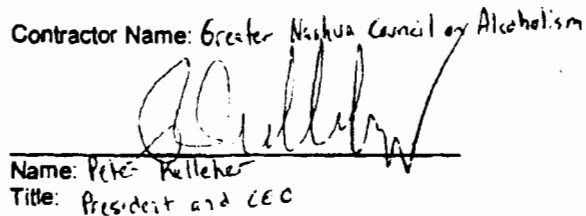 Contractor Name: Greater Nashua Council on Alcoholism
Name: Peter Kelleher
Title: President and CEO